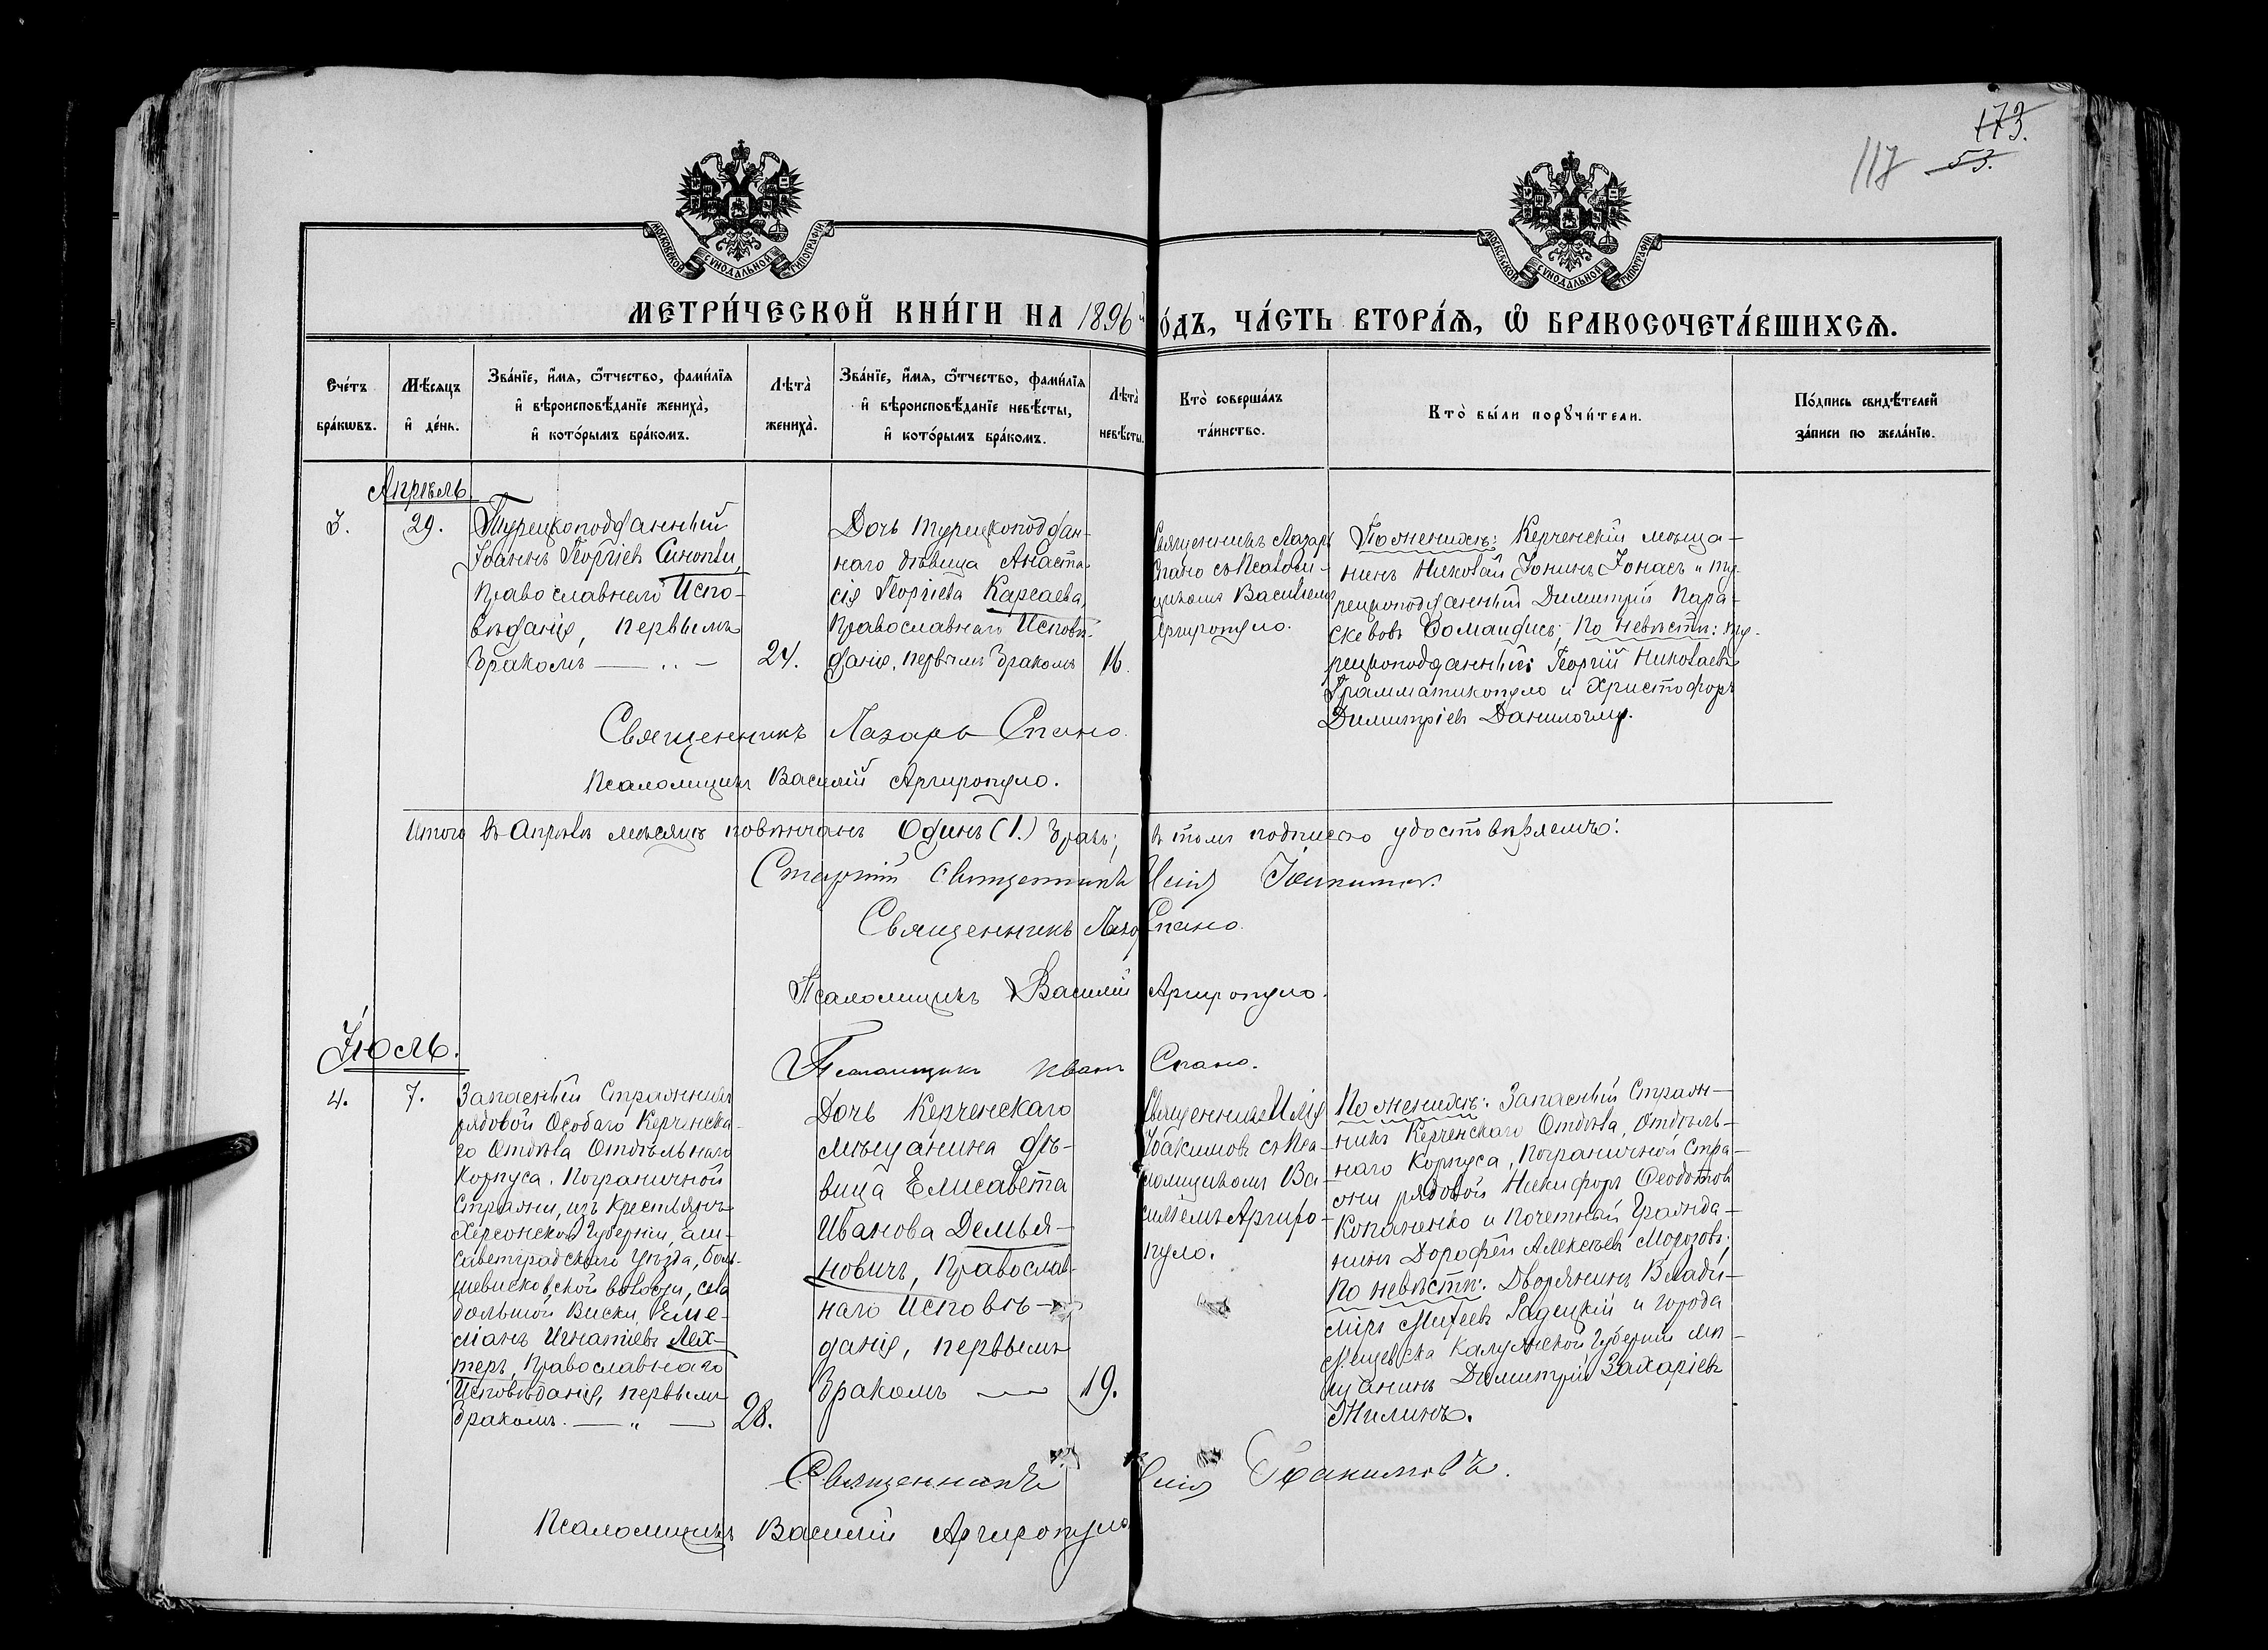 173.
117 53.
МОСКОВСКОЙ СѴНОДАЛЬНОЙ ТИПОГРАФІИ
МОСКОВСКОЙ СѴНОДАЛЬНОЙ ТИПОГРАФІИ
МЕТРИ́ЧЕСКОЙ КНИ́ГИ НА 1896й
О́ДЪ, ЧА́СТЬ ВТОРА́Ѧ, Ѽ БРАКОСОЧЕТА́ВШИХСѦ.
Сче́тъ
бра́кѡвъ.
Мѣ́сяцъ
и҆ де́нь.
Зва́нїе, и҆́мѧ, ѻ҆́тчество, фами́лїѧ
и҆ вѣроисповѣ́данїе жениха̀,
и҆ кото́рымъ бра́комъ.
Лѣта̀
жениха̀.
Зва́нїе, и҆́мѧ, ѻ҆́тчество, фами́лїѧ
и҆ вѣроисповѣ́данїе невѣ́сты,
и҆ кото́рымъ бра́комъ.
Лѣта̀
невѣ́сты.
Кто̀ соверша́лъ
та́инство.
Кто̀ бы́ли порꙋчи́тели.
По́дпись свидѣ́телей
за́писи по жела́нїю.
Апрѣль.
3.
29.
Турецкоподданный
Іоаннъ Георгіев Синопли,
Православнаго Испо-
вѣданія, первымъ
бракомъ
24.
Дочь турецкоподдан-
наго дѣвица Анаста-
сія Георгіева Карсаева,
Православнаго Исповѣ-
данія, первымъ бракомъ
16.
Священникъ Лазарь
Спано съ Псалом-
щикомъ Василіемъ
Аргиропуло.
По женихѣ: Керченскій мѣща-
нинъ Николай Іонинъ Іонасъ и ту-
рецкоподданный Димитрій Пара-
скевовъ ; По невѣстѣ: ту-
рецкоподданный: Георгій Николаевъ
Грамматикопуло и Христофоръ
Димитріевъ Данилогло.
Священникъ Лазарь Спано.
Псаломщикъ Василій Аргиропуло.
Итого въ Апрѣлѣ мѣсяцѣ повѣнчанъ Одинъ (1.) бракъ; въ томъ подписью удостовѣряемъ:
Старшій священникъ Илія
Священникъ Лазарь Спано.
Псаломщикъ Василій Аргиропуло.
Псаломщикъ Иванъ Спано.
Іюль.
4.
7.
Запасный Стражникъ
рядовой Особаго Керченска-
го Отдѣла Отдѣльнаго
Корпуса Пограничной
Стражи, изъ крестьянъ
Херсонской Губерніи, Ели-
саветградскаго Уѣзда, Боль-
шевисковской волости, села
Большой Виски, Еме-
ліанъ Игнатіевъ Лех-
теръ, Православнаго
Исповѣданія, первымъ
бракомъ.
28.
Дочь Керченскаго
мѣщанина дѣ-
вица Елисавета
Иванова Демья-
новичъ, Православ-
наго Исповѣ-
данія, первымъ
бракомъ
19.
Священникъ Илія
Іоакимовъ съ Пса-
ломщикомъ Ва-
силіемъ Аргиро-
пуло.
По женихѣ: Запасный Страж-
никъ Керченскаго Отдѣла, Отдѣль-
наго Корпуса, Пограничной Стра-
жи рядовой Никифоръ Ѳеодотовъ
Копаченко и Почетный Гражда-
нинъ Дорофей Алексѣевъ Морозовъ;
По невѣстѣ: Дворянинъ Влади-
міръ Матѳеевъ Радецкій и города
Мещевска Калужской Губерніи мѣ-
щанинъ Димитрій Захаріевъ
Жилинъ.
Священникъ Илія Іоакимовъ.
Псаломщикъ Василій Аргиропуло